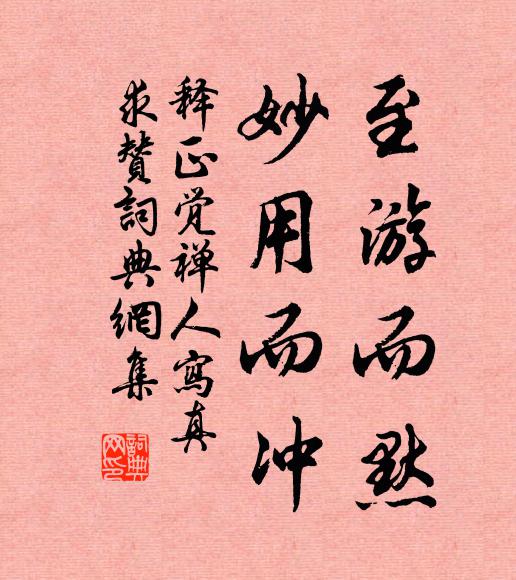 至游而默
妙用而冲
释正觉禅人寫真
求賛詞典網集
詞典网印